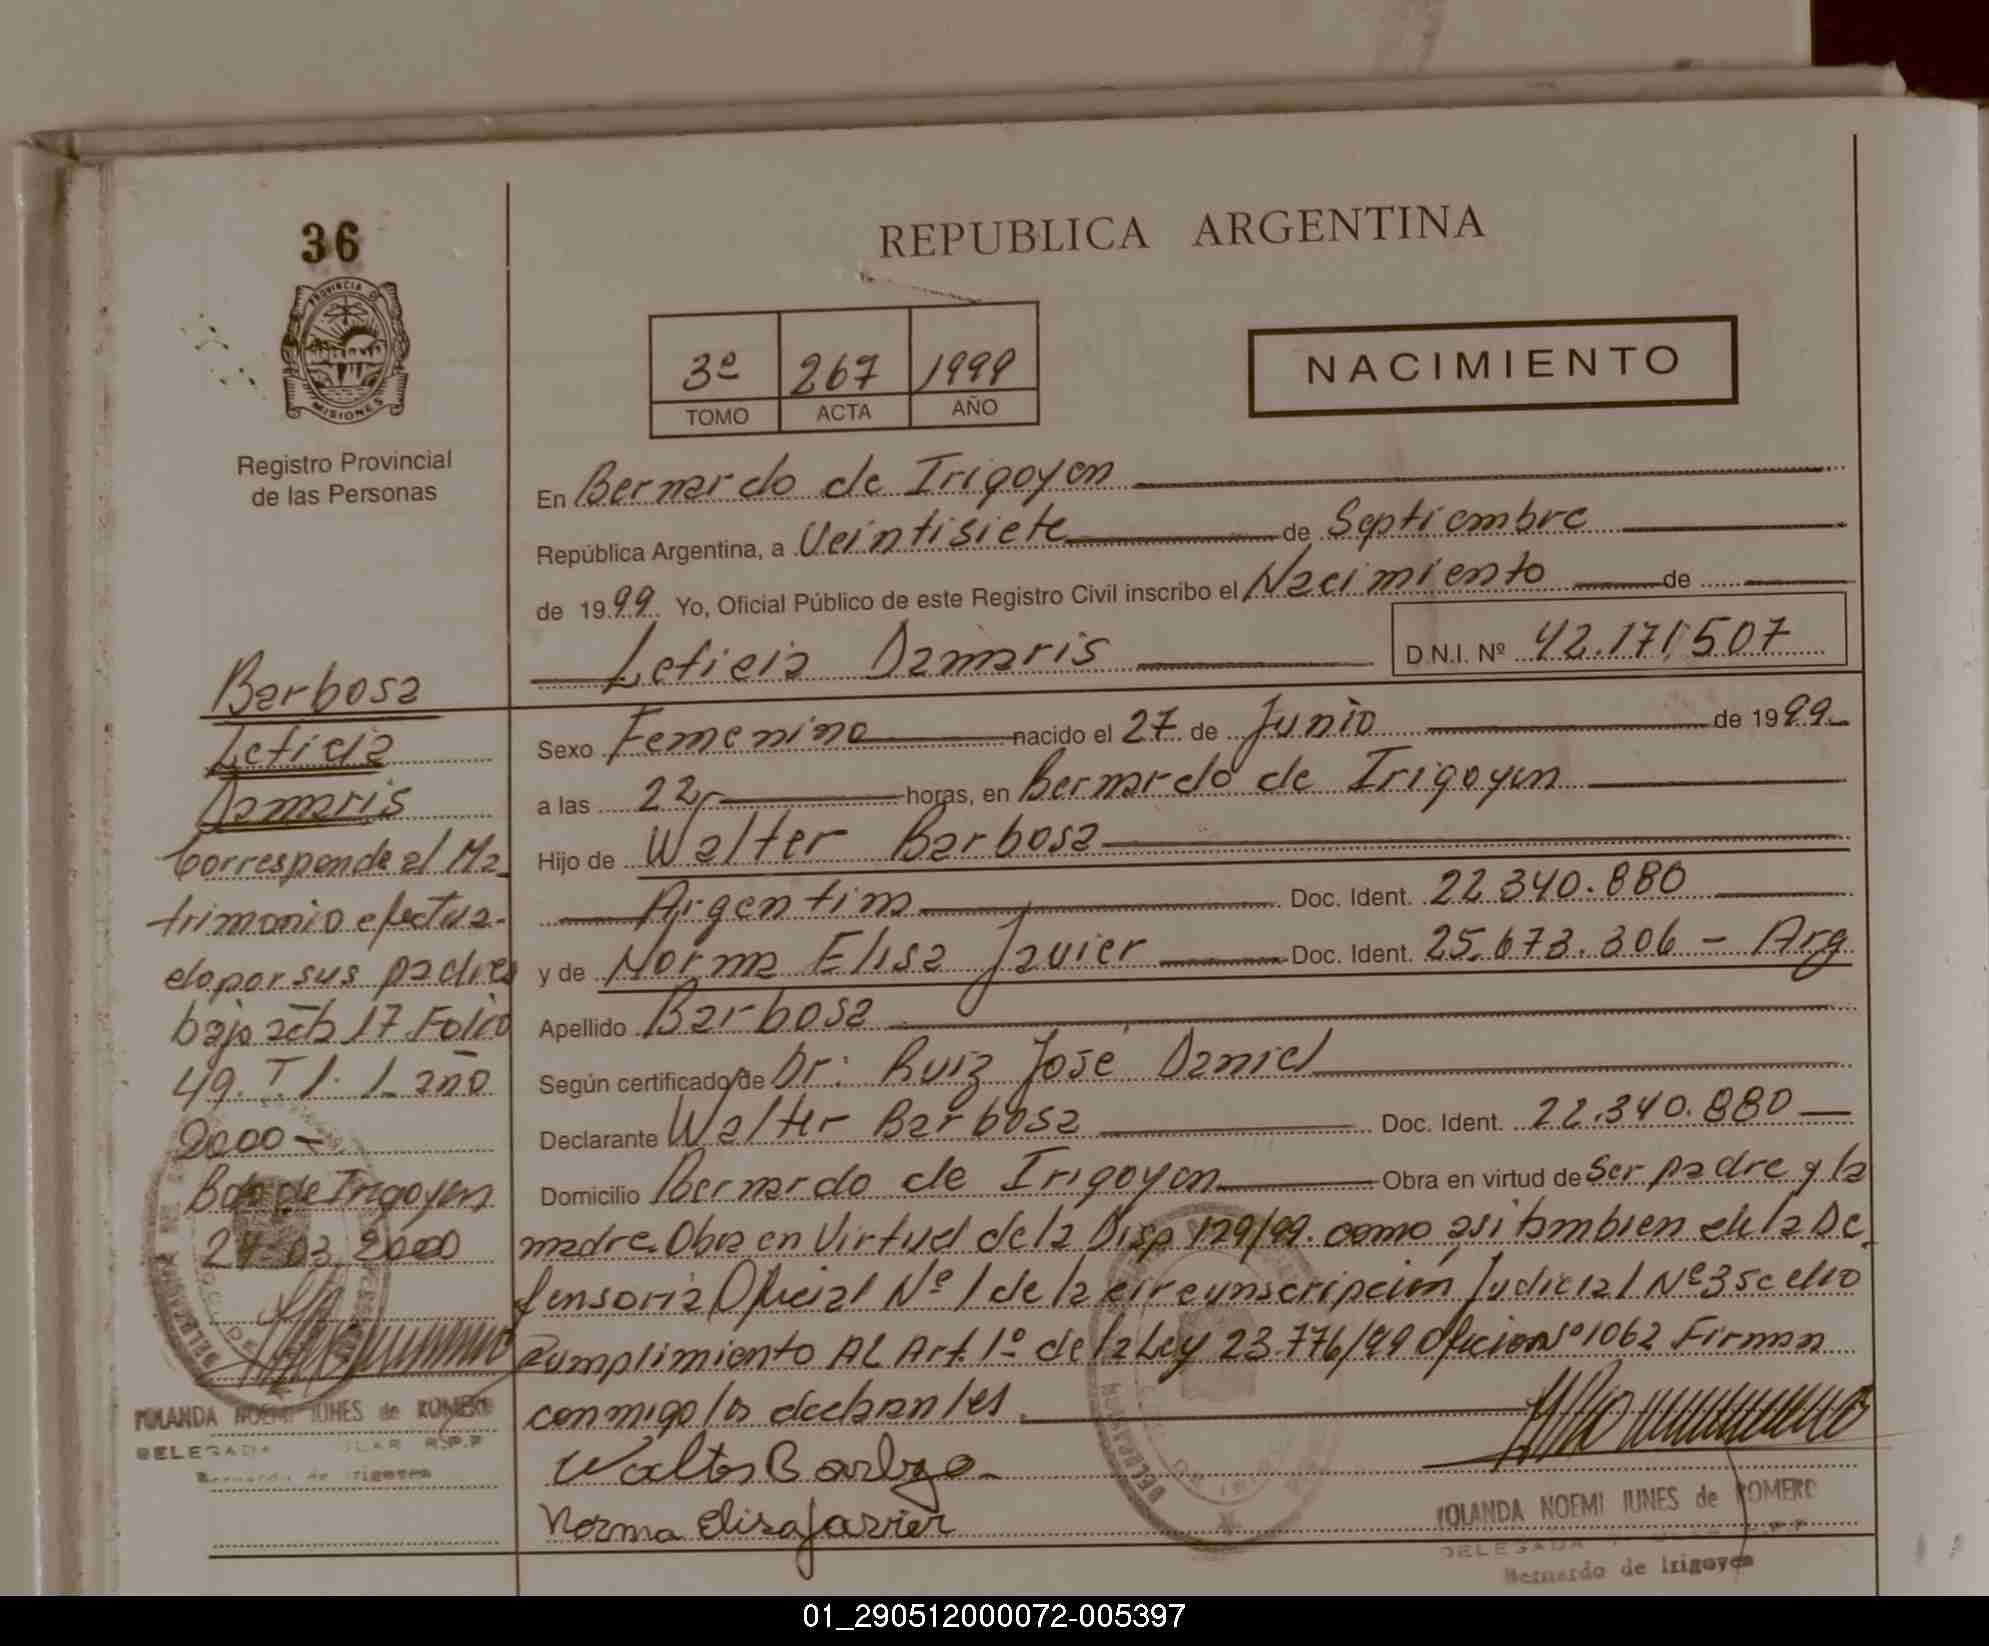 36
PROVINCIA D
MISIONES
Registro Provincial
de las Personas
REPUBLICA ARGENTINA
3º 267 1999
TOMO ACTA AÑO
NACIMIENTO
En Bernardo de Irigoyen
República Argentina, a Veintisiete de Septiembre
de 1999. Yo, Oficial Público de este Registro Civil inscribo el Nacimiento de
Leticia Damaris
D.N.I. Nº 42.171.507
Sexo Femenino nacido el 27 de Junio de 1999
a las 22 horas, en Bernardo de Irigoyen
Hijo de Walter Barbosa
Argentino Doc. Ident. 22.340.880
y de Norma Elisa Javier Doc. Ident. 25.673.306 - Arg
Apellido Barbosa
Según certificado de Dr: Ruiz José Daniel
Declarante Walter Barbosa Doc. Ident. 22.340.880
Domicilio Bernardo de Irigoyen Obra en virtud de Ser padre y la
madre. Obra en Virtud de la Disp 129/99. como asi tambien de la De
fensoria Oficial Nº 1 de la circunscripción Judicial Nº 3 se dio
cumplimiento AL Art. 1º de la Ley 23.776/99 Oficio Nº 1062 Firman
conmigo los declarantes
Walter Barboza
Norma Elisa Javier
YOLANDA NOEMI IUNES de ROMERO
DELEGADA
Bernardo de Irigoyen
Barbosa
Leticia
Damaris
Corresponde al Ma
trimonio efectua-
do por sus padres
bajo acta 17 Folio
49. T 1. L año
2000 -
Bdo de Irigoyen
24-03 2000
YOLANDA NOEMI IUNES de ROMERO
DELEGADA TITULAR R.P.P
Bernardo de Irigoyen
01_290512000072-005397